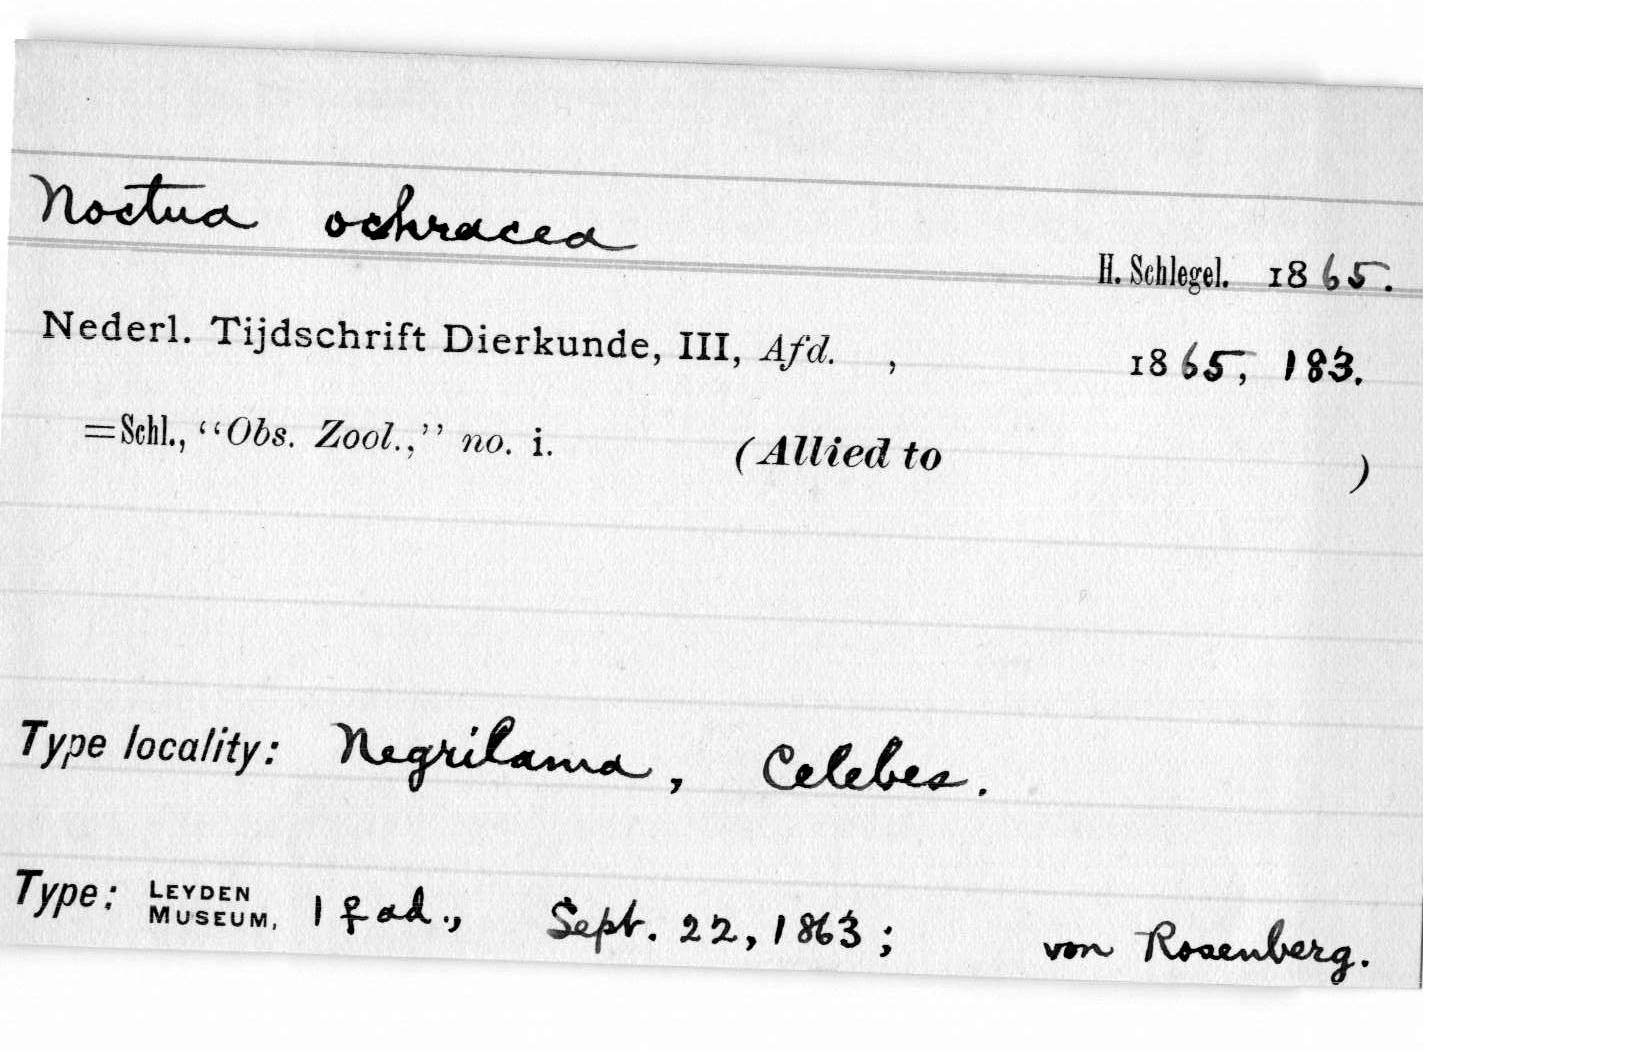 Noctua ochracea
H. Schlegel. 1865.
Nederl. Tijdschrift Dierkunde, III, Afd. , 1865, 183.
=Schl., “Obs. Zool.,” no. i. (Allied to )
Type locality: Negrilama, Celebes.
Type: LEYDEN MUSEUM, 1 ♀ ad., Sept. 22, 1863; von Rosenberg.